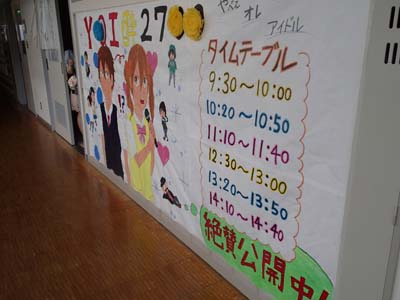 やってオレ
アイドル
タイムテーブル
9:30〜10:00
10:20〜10:50
11:10〜11:40
12:30〜13:00
13:20〜13:50
14:10〜14:40
絶賛公開中!